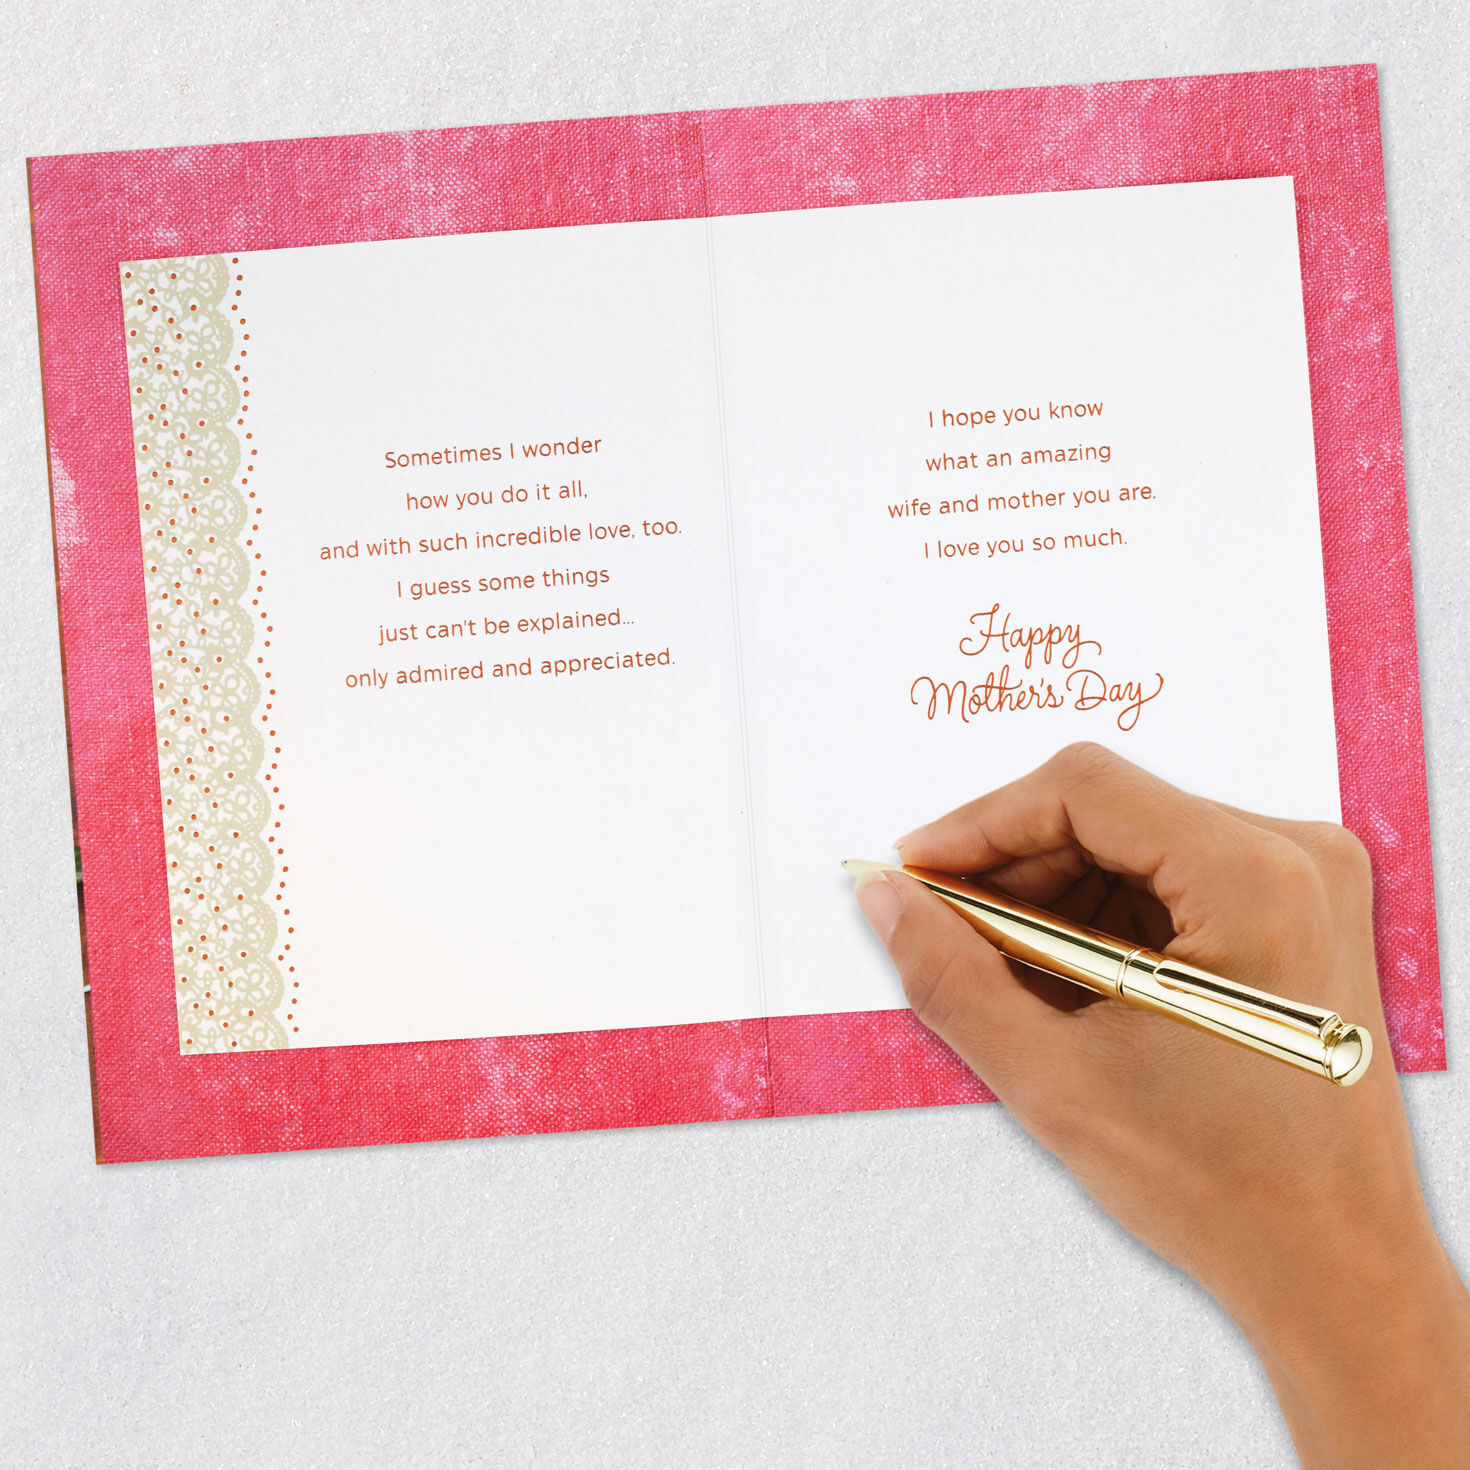 Sometimes I wonder
how you do it all,
and with such incredible love, too.
I guess some things
just can't be explained...
only admired and appreciated.
I hope you know
what an amazing
wife and mother you are.
I love you so much.
Happy
Mother's Day